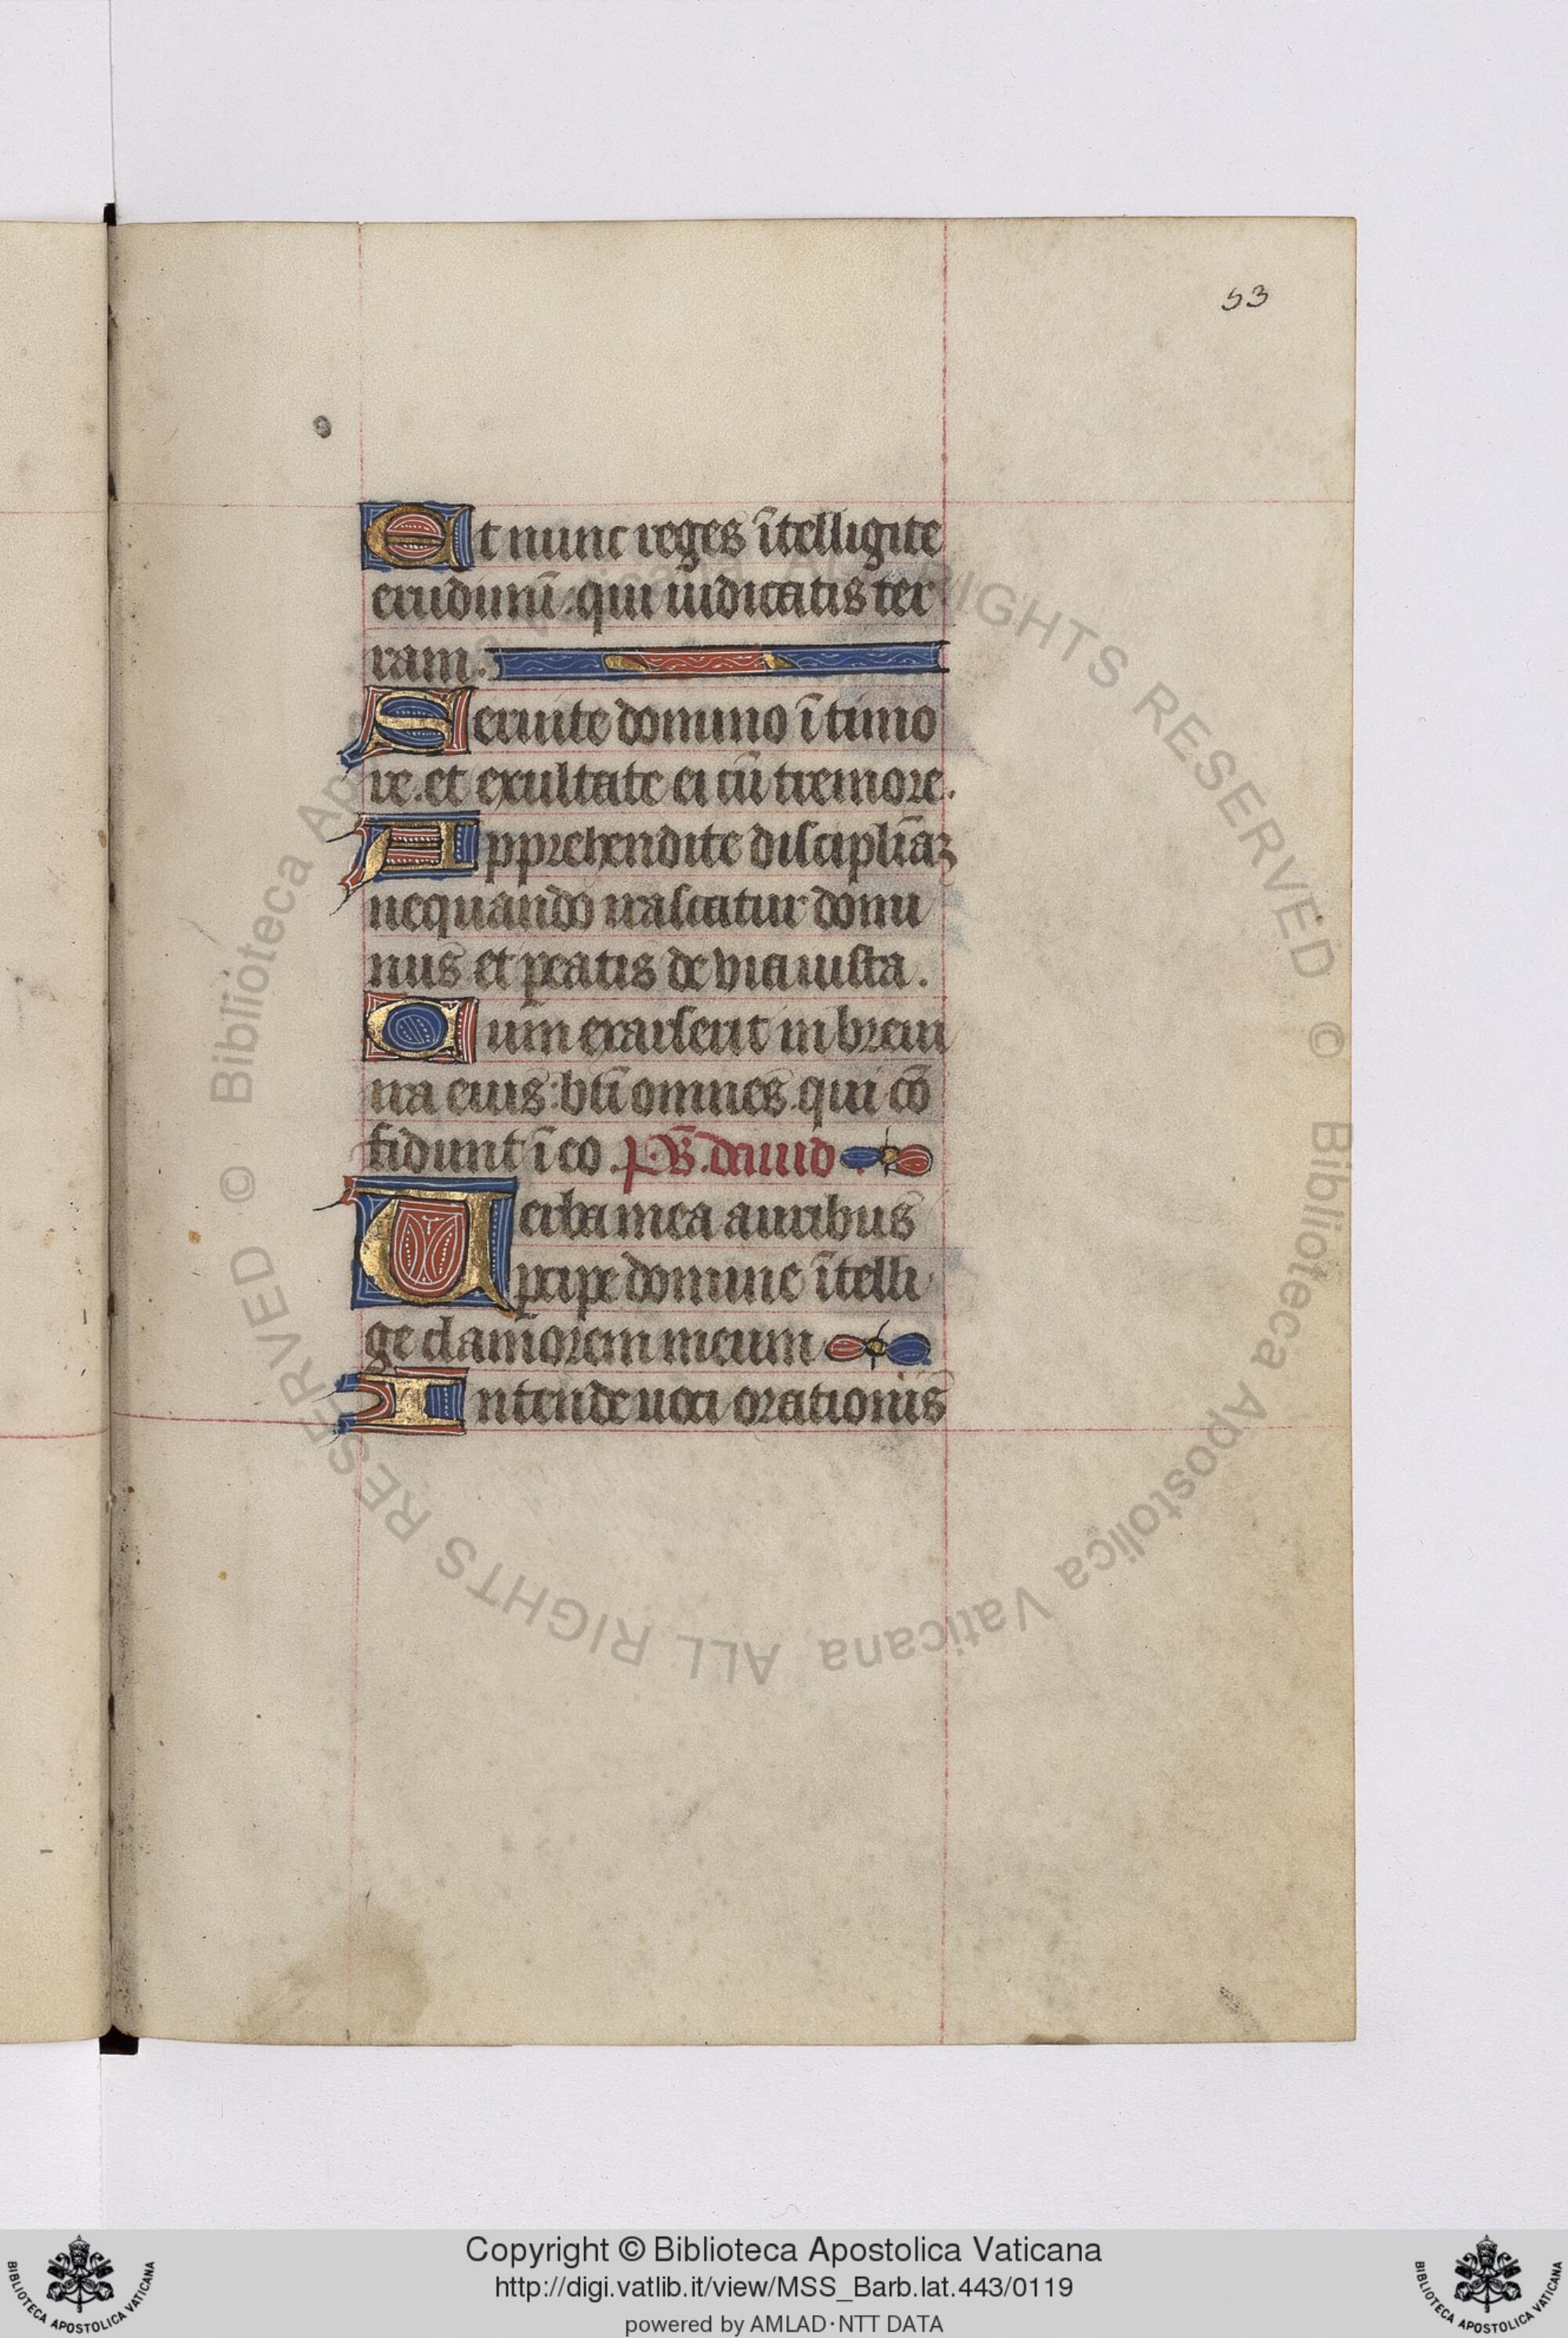 53
Et nunc reges ītelligite
erudimī. qui iudicatis ter
ram.
Seruite domino ī timo
re. et exultate ei cū tremore.
Apprehendite disciplīaꝫ
nequando irascatur domi
nus et peatis de via iusta.
Cum exarserit in breui
ira eius: bt̄i omnes. qui cō
fidunt ī eo. p̄. v̄. dauid
Uerba mea auribus
pcipe domine ītelli
ge clamorem meum
Intende uoci orationis
© Biblioteca Apostolica Vaticana ALL RIGHTS RESERVED © Biblioteca Apostolica Vaticana ALL RIGHTS RESERVED
Copyright © Biblioteca Apostolica Vaticana
http://digi.vatlib.it/view/MSS_Barb.lat.443/0119
powered by AMLAD·NTT DATA
BIBLIOTECA APOSTOLICA VATICANA
BIBLIOTECA APOSTOLICA VATICANA